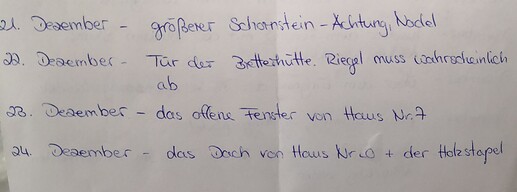 21. Dezember - größerer Schornstein - Achtung, Nadel
22. Dezember - Tür der Bretterhütte. Riegel muss wahrscheinlich
ab
23. Dezember - das offene Fenster von Haus Nr. 7
24. Dezember - das Dach von Haus Nr. + der Holzstapel